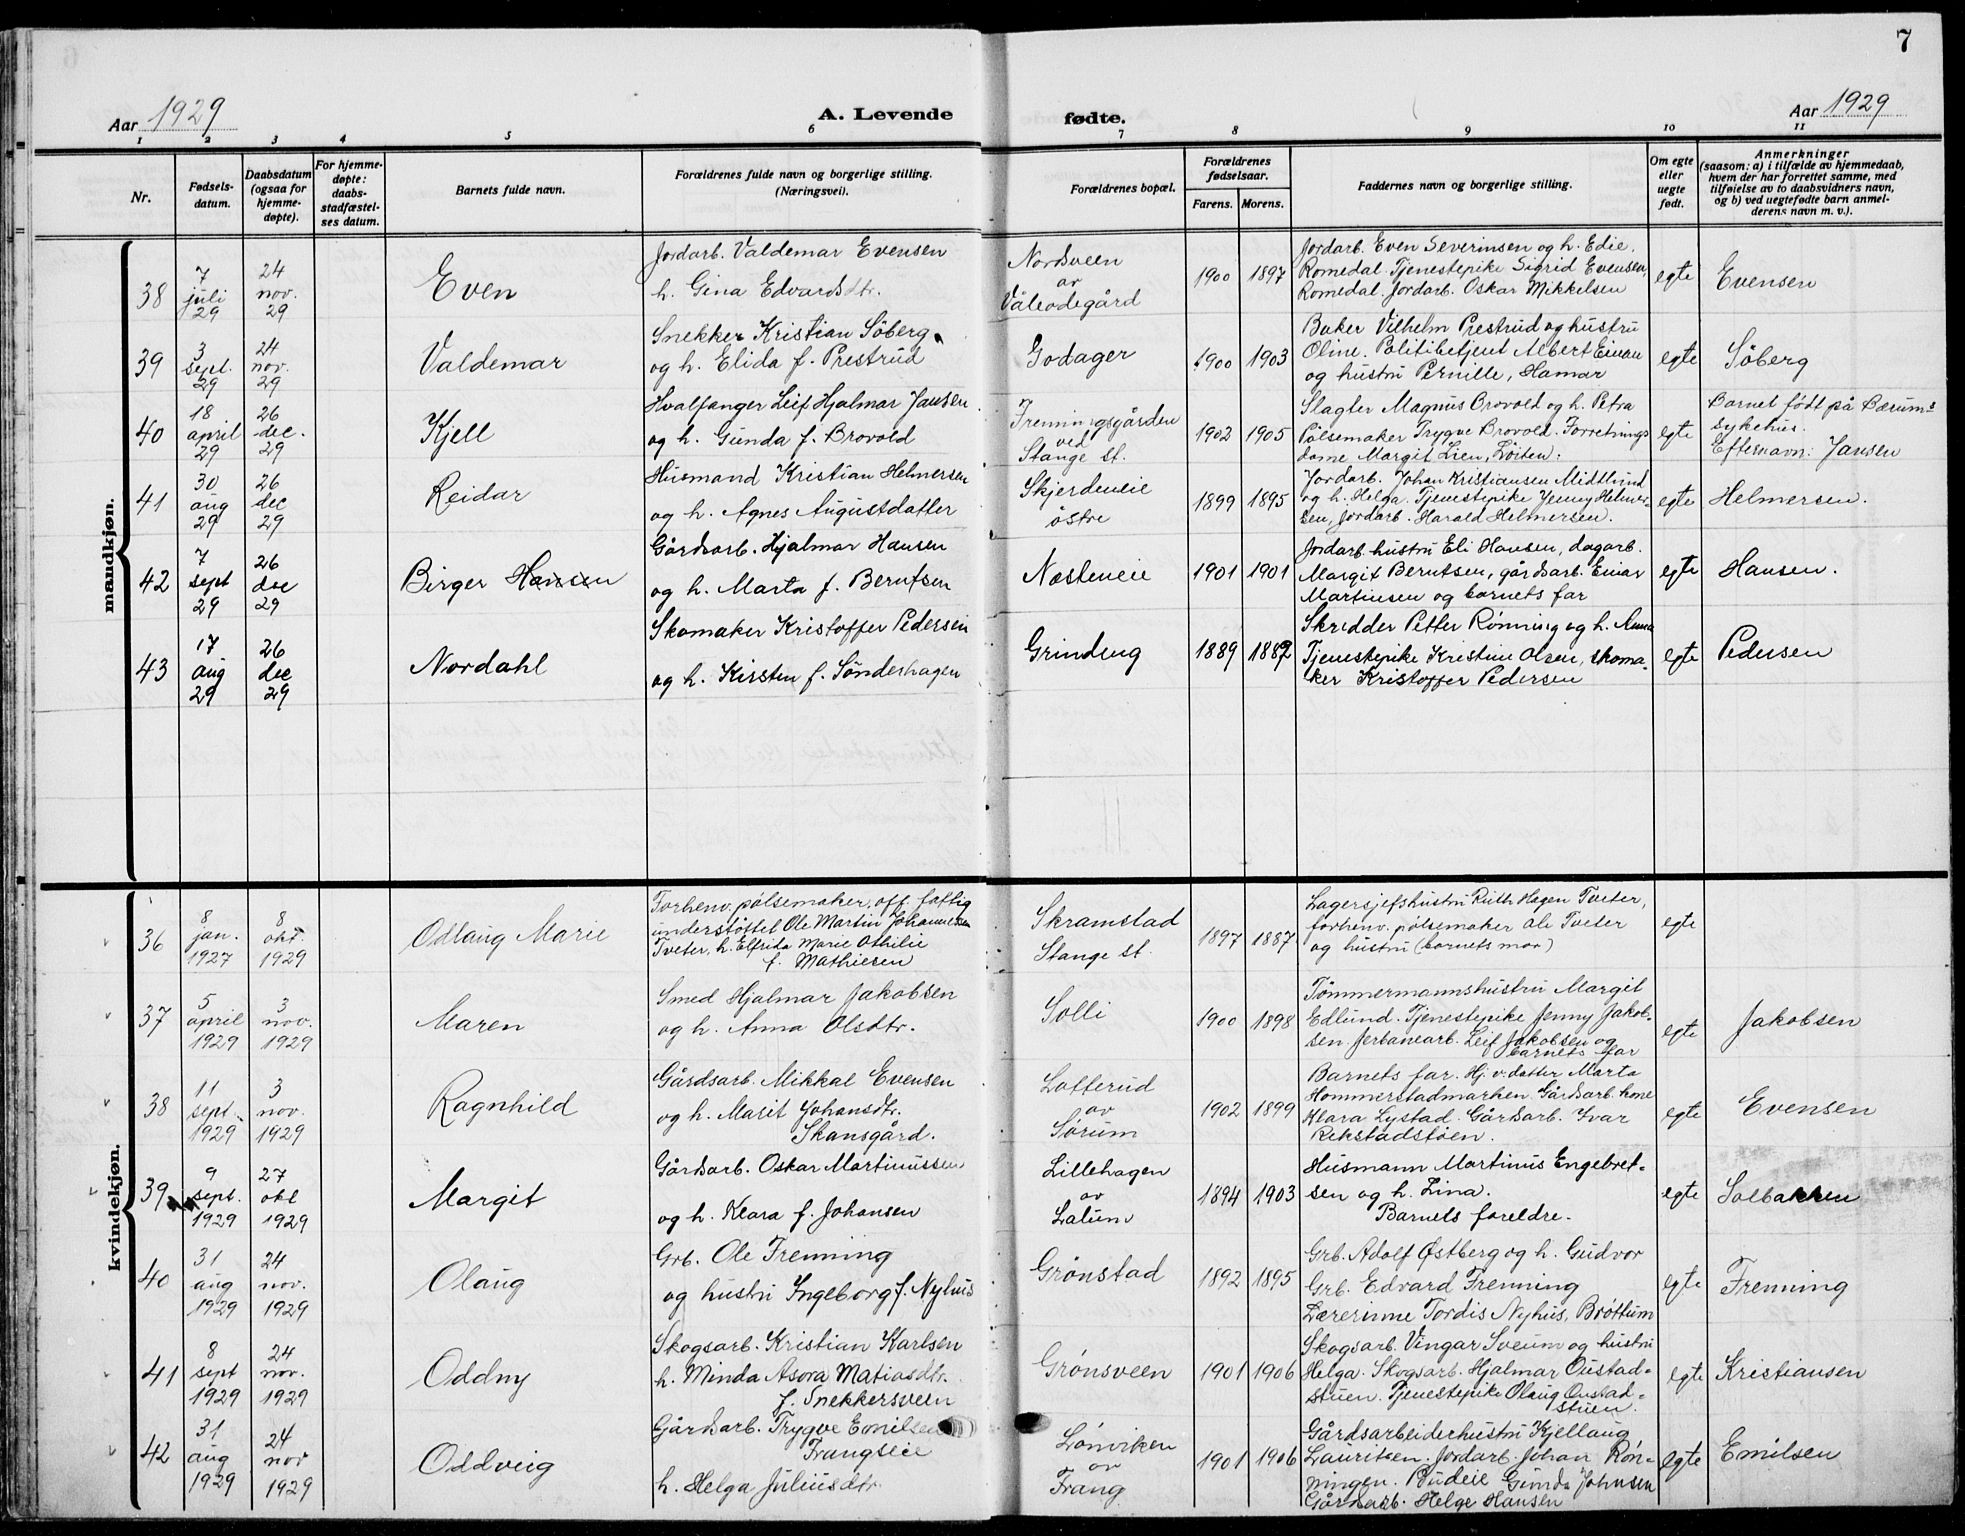 7
Aar 1929
A. Levende
fødte.
Aar 1929
1 2 3 4 5 6 7 8 9 10 11
Nr.
Fødsels-
datum.
Daabsdatum
(ogsaa for
hjemme-
døpte).
For hjemme-
døpte:
daabs-
stadfæstel-
ses datum.
Barnets fulde navn.
Forældrenes fulde navn og borgerlige stilling.
(Næringsvei).
Forældrenes bopæl.
Forældrenes
fødselsaar.
Farens. Morens.
Faddernes navn og borgerlige stilling.
Om egte
eller
uegte
født.
Anmerkninger
(saasom: a) i tilfælde av hjemmedaab,
hvem der har forrettet samme, med
tilføielse av to daabsvidners navn,
og b) ved uegtefødte barn anmel-
derens navn m. v.).
mandkjøn.
38
7
juli
29
24
nov.
29
Even
Jordarb. Valdemar Evensen
h. Gina Edvardsdtr.
Nordsveen
av
Våleodegård
1900 1897
Jordarb. Even Severinsen og h. Edie,
Romedal. Tjenestepike Sigrid Evensen,
Romedal. Jordarb. Oskar Mikkelsen
egte
Evensen
39
3
sept.
29
24
nov.
29
Valdemar
Snekker Kristian Söberg
og h. Elida f. Prestrud
Godager
1900 1903
Baker Vilhelm Prestrud og hustru
Oline. Politibetjent Albert Einan
og hustru Pernille, Hamar
egte
Söberg
40
18
april
29
26
dec.
29
Kjell
Hvalfanger Leif Hjalmar Jansen
og h. Gunda f. Brovold
Frenningsgården
ved
Stange st.
1902 1905
Slagter Magnus Brovold og h. Petra
Pölsemaker Trygve Brovold. Forretnings
dame Margit Lien, Löiten.
egte
Barnet född på Bærums
sykehus.
Efternavn: Jansen
41
30
aug
29
26
dec
29
Reidar
Husmand Kristian Helmersen
og h. Agnes Augustdatter
Skjerdeneie
östre
1899 1895
Jordarb. Johan Kristiansen Midtlund
og h. Helga. Tjenestepike Jenny Helmer-
sen, Jordarb. Harald Helmersen.
egte
Helmersen.
42
7
sept
29
26
dec
29
Birger Hansen
Gårdsarb. Hjalmar Hansen
og h. Marta f. Berntsen
Næsteneie
1901 1901
Jordarb. hustru Eli Hansen, dagarb.
Margit Berntsen, gårdsarb. Einar
Martinsen og barnets far
egte
Hansen.
43
17
aug
29
26
dec
29
Nordahl
Skomaker Kristoffer Pedersen
og h. Kirsten f. Sönderhagen
Grindeng
1889 1882
Skredder Petter Rönning og h. Anna
Tjenestepike Kristine Olsen, skoma-
ker Kristoffer Pedersen
egte
Pedersen
kvindekjøn.
36
8
jan.
1927
8
okt.
1929
Odlaug Marie
Forhenv. pölsemaker, off. fattig
understöttet Ole Martin Johannesen
Tveter, h. Elfrida Marie Othilie
f. Mathiesen
Skramstad
Stange st.
1897 1887
Lagersjefshustru Ruth Hagen Tveter,
forhenv. pölsemaker Ole Tveter
og hustru (barnets mor)
egte
37
5
april
1929
3
nov.
1929
Maren
Smed Hjalmar Jakobsen
og h. Anna Olsdtr.
Solli
1900 1898
Tömmermannshustru Margit
Edlund. Tjenestepike Jenny Jakob-
sen. Jerbanearb. Leif Jakobsen og
barnets far
egte
Jakobsen
38
11
sept.
1929
3
nov.
1929
Ragnhild
Gårdsarb. Mikkal Evensen
og h. Marit Johansdtr.
Skansgård.
Lotterud
av
Sörum
1902 1899
Barnets far. Hj. v. datter Marta
Hommerstadmarken. Gårdsarb. kone
Klara Lystad. Gårdsarb. Ivar
Rekstadstöen.
egte
Evensen
39
9
sept.
1929
27
okt
1929
Margit
Gårdsarb. Oskar Martinussen
og h. Klara f. Johansen
Lillehagen
av
Lalum
1894 1903
Husmann Martinus Engebret-
sen og h. Lina.
Barnets foreldre.
egte
Solbakken
40
31
aug
1929
24
nov.
1929
Olaug
Grb. Ole Frenning
og hustru Ingeborg f. Nyhus
Grönstad
1892 1895
Grb. Adolf Østberg og h. Gudvor
Grb. Edvard Frenning
Lærerinne Tordis Nyhus, Bröttum
egte
Frenning
41
8
sept
1929
24
nov.
1929
Oddny
Skogsarb. Kristian Karlsen
h. Minda Asora Matiasdtr.
f. Snekkersveen
Grønsveen
1901 1906
Skogsarb. Vingar Sveum og hustru
Helga. Skogsarb. Hjalmar Oustad-
stuen. Tjenestepike Olaug Oustad-
stuen.
egte
Kristiansen
42
31
aug
1929
24
nov
1929
Oddveig
Gårdsarb. Trygve Emilsen
Frangseie
h. Helga Juliusdtr.
Lönviken
av
Frang
1901 1906
Gårdsarbeiderhustru Kjellaug
Lauritsen. Jordarb. Johan Rön-
ningen. Budeie Gunda Johnsen
Gårdsarb. Helge Hansen
egte
Emilsen